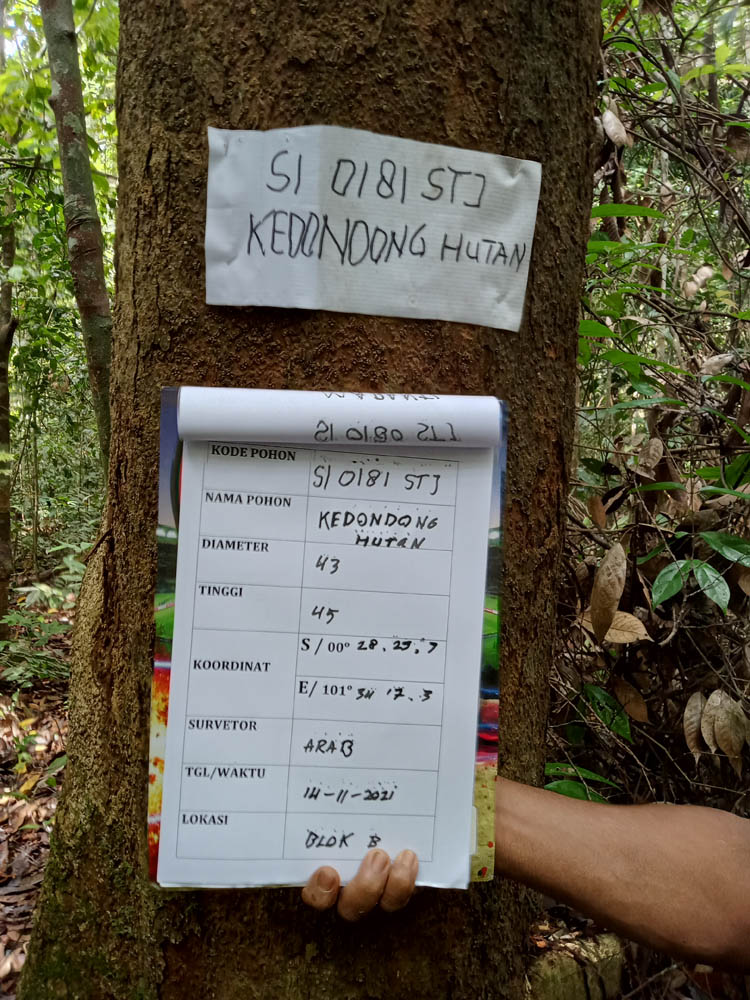 SI 0181 STJ
KEDONDONG HUTAN
SI 0180 STJ
KODE POHON SI 0181 STJ
NAMA POHON KEDONDONG
HUTAN
DIAMETER 43
TINGGI 45
KOORDINAT S / 00° 28. 29. 7
E/ 101° 34 17. 3
SURVETOR ARAB
TGL/WAKTU 14-11-2021
LOKASI BLOK B